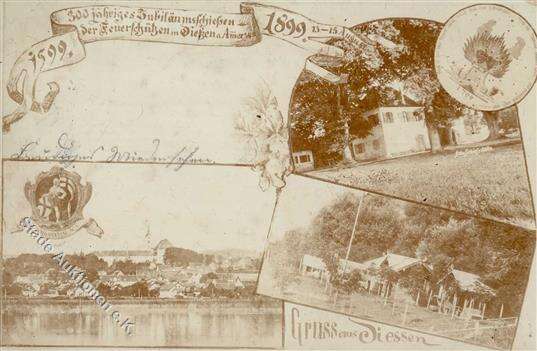 300 jähriges Jubiläumsschießen
der Feuerschützen in Dießen a. Ammersee
1599.
1899
13-15
Wiedersehen.
Gruss aus Diessen
Stade Auktionen e.K.